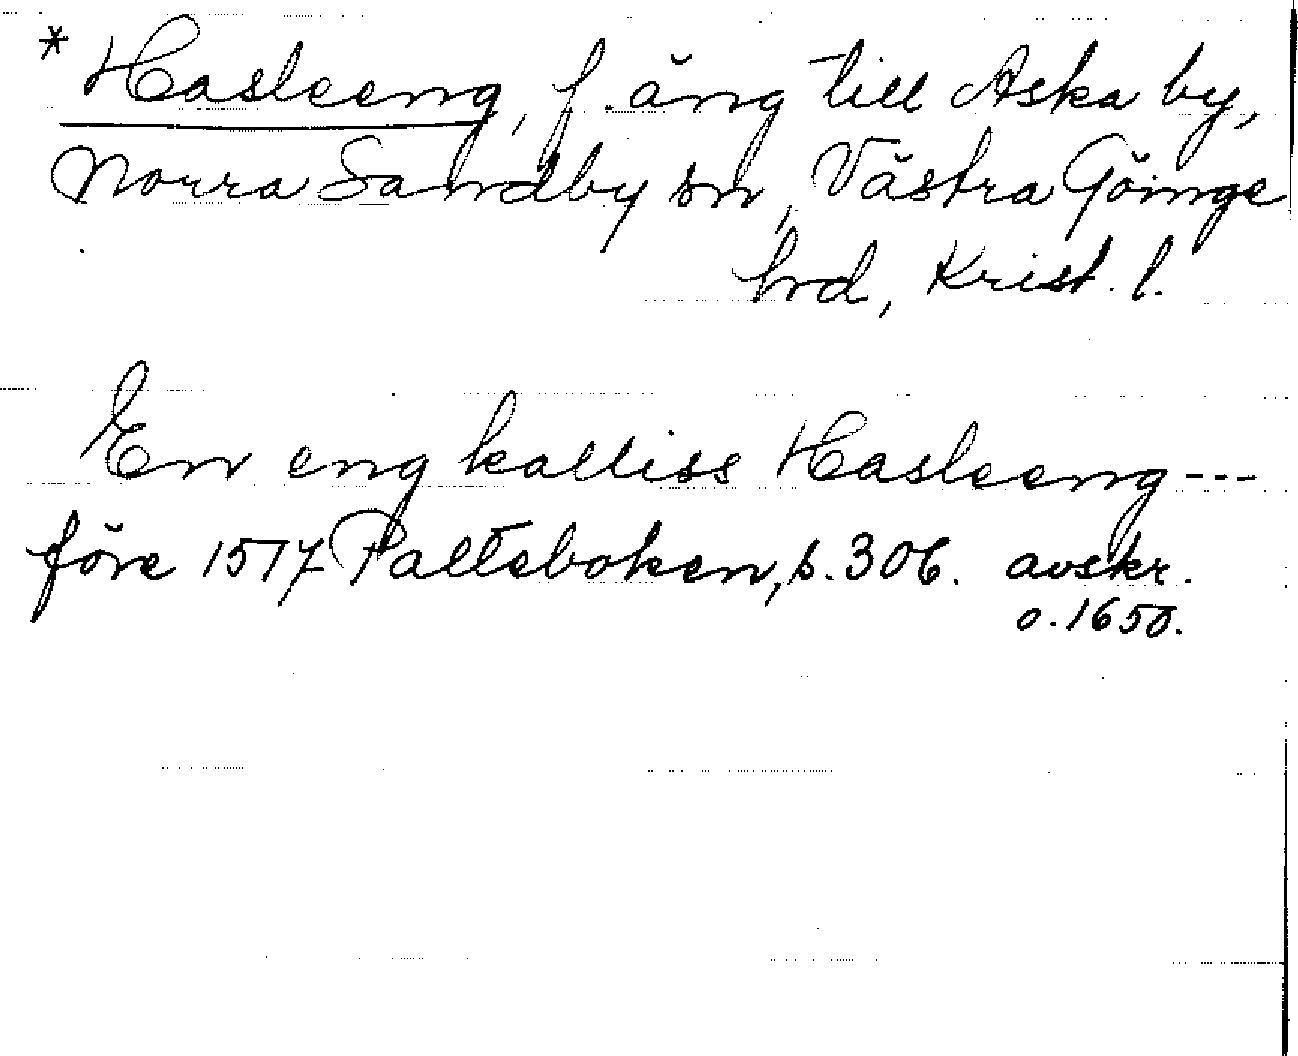 * Hasleeng, f. äng till Aska by,
Norra Sandby sn, Västra Göinge
hrd, Krist. l.
En eng kalliss Hasleeng ---
före 1517 Palteboken, s. 306. avskr.
o. 1650.